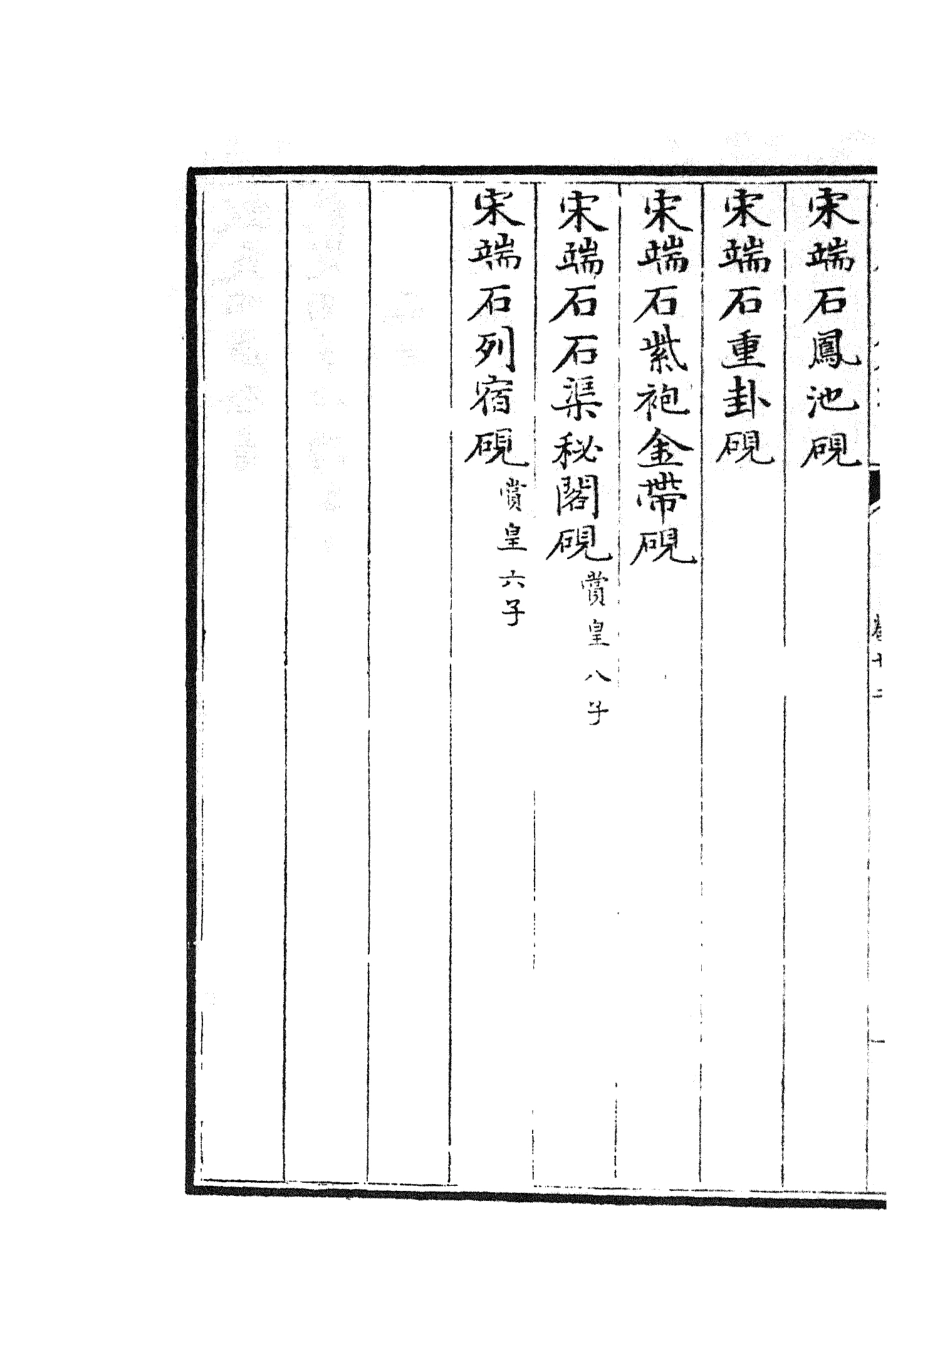 宋端石鳳池硯
宋端石重卦硯
宋端石紫袍金帶硯
宋端石石渠秘閣硯 賞皇八子
宋端石列宿硯 賞皇六子